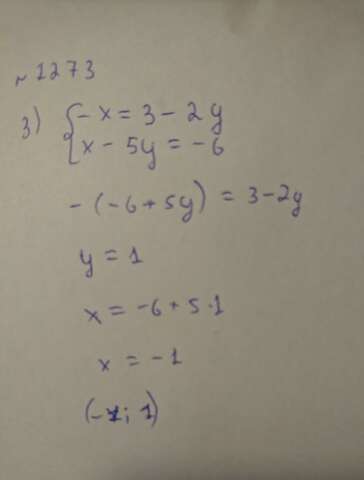 № 1273
3) { -x = 3 - 2y
x - 5y = -6
-(-6+5y) = 3-2y
y = 1
x = -6+5·1
x = -1
(-1; 1)